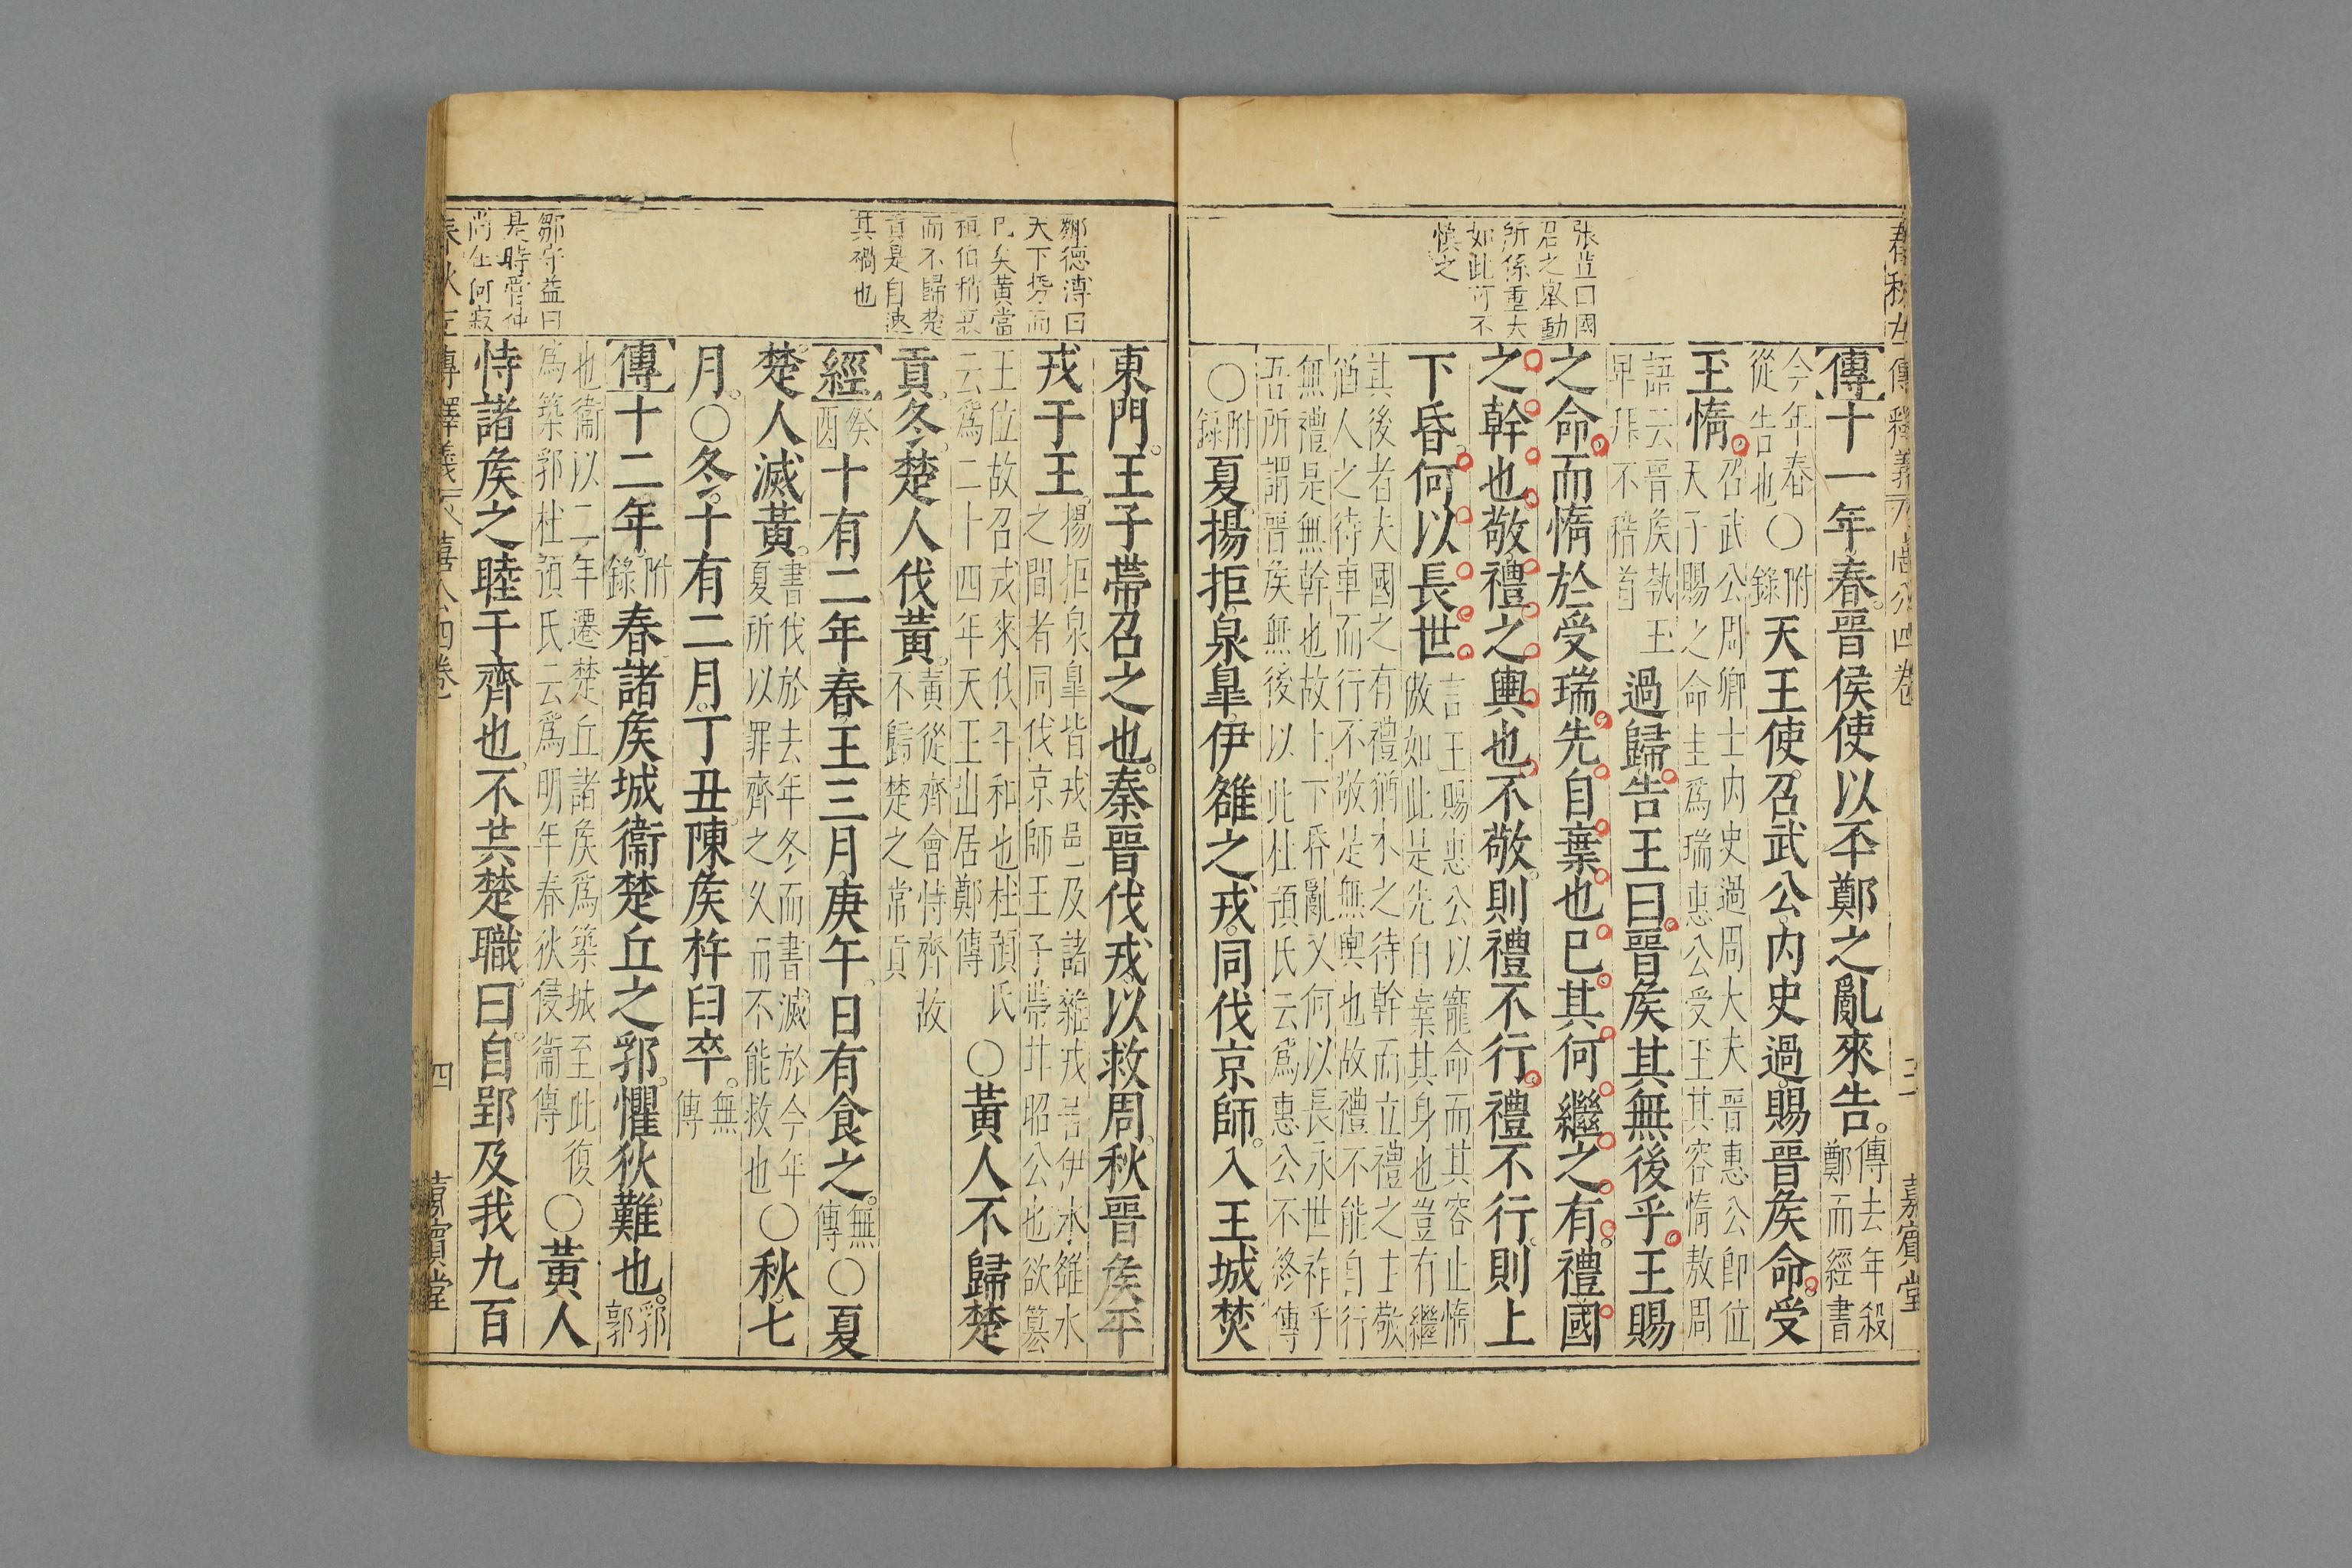 張豈曰國
召之舉動
所係重大
如此可不
慎之
傳十一年春晉侯使以㔻鄭之亂來告傳去年殺
鄭而經書
今年春○附
從告也錄
天王使召武公内史過賜晉矦命受
玉惰召武公周卿士内史過周大夫晉惠公即位
天子賜之命圭爲瑞惠公受玉其容惰敖周
語云晉矦執玉
早拜不稽首
過歸告王曰晉矦其無後乎王賜
之命而惰於受瑞先自棄也已其何繼之有禮國
之幹也敬禮之輿也不敬則禮不行禮不行則上
下昏何以長世言王賜惠公以寵命而其容止惰
傲如此是先自棄其身也豈有繼
其後者夫國之有禮猶木之待幹而立禮之主敬
猶人之待車而行不敬是無輿也故禮不能自行
無禮是無幹也故上下昏亂又何以長永世祚乎
吾所謂晉矦無後以此杜預氏云爲惠公不終傳
○附
錄
夏揚拒泉皐伊雒之戎同伐京師入王城焚
鄒德溥曰
天下勢而
已矣黃當
桓伯稍衰
而不歸楚
貢是自速
其禍也
東門王子帶召之也秦晉伐戎以救周秋晉矦平
戎于王揚拒泉皐皆戎邑及諸雜戎居伊水雒水
之間者同伐京師王子帶甘昭公也欲篡
王位故召戎來伐平和也杜預氏
云爲二十四年天王出居鄭傳
○黃人不歸楚
貢冬楚人伐黃黃從齊會恃齊故
不歸楚之常貢
經癸
酉
十有二年春王三月庚午日有食之無
傳
○夏
楚人滅黃書伐於去年冬而書滅於今年
夏所以罪齊之久而不能救也
○秋七
月○冬十有二月丁丑陳矦杵臼卒無
傳
傳十二年附
錄
春諸矦城衞楚丘之郛懼狄難也郛
郭
也衞以二年遷楚丘諸矦爲築城至此復
爲築郛杜預氏云爲明年春狄侵衞傳
○黃人
鄒守益曰
是時管仲
尚在何寂
恃諸矦之睦于齊也不共楚職曰自郢及我九百
四
嘉賓堂